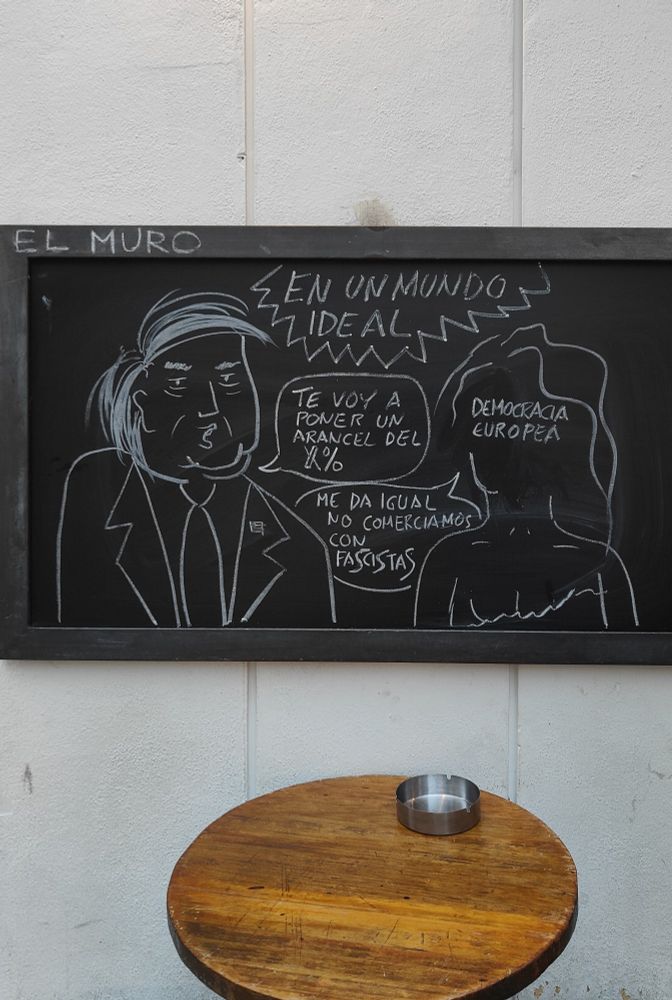 EL MURO
EN UN MUNDO
IDEAL
TE VOY A
PONER UN
ARANCEL DEL
X%
DEMOCRACIA
EUROPEA
ME DA IGUAL
NO COMERCIAMOS
CON
FASCISTAS